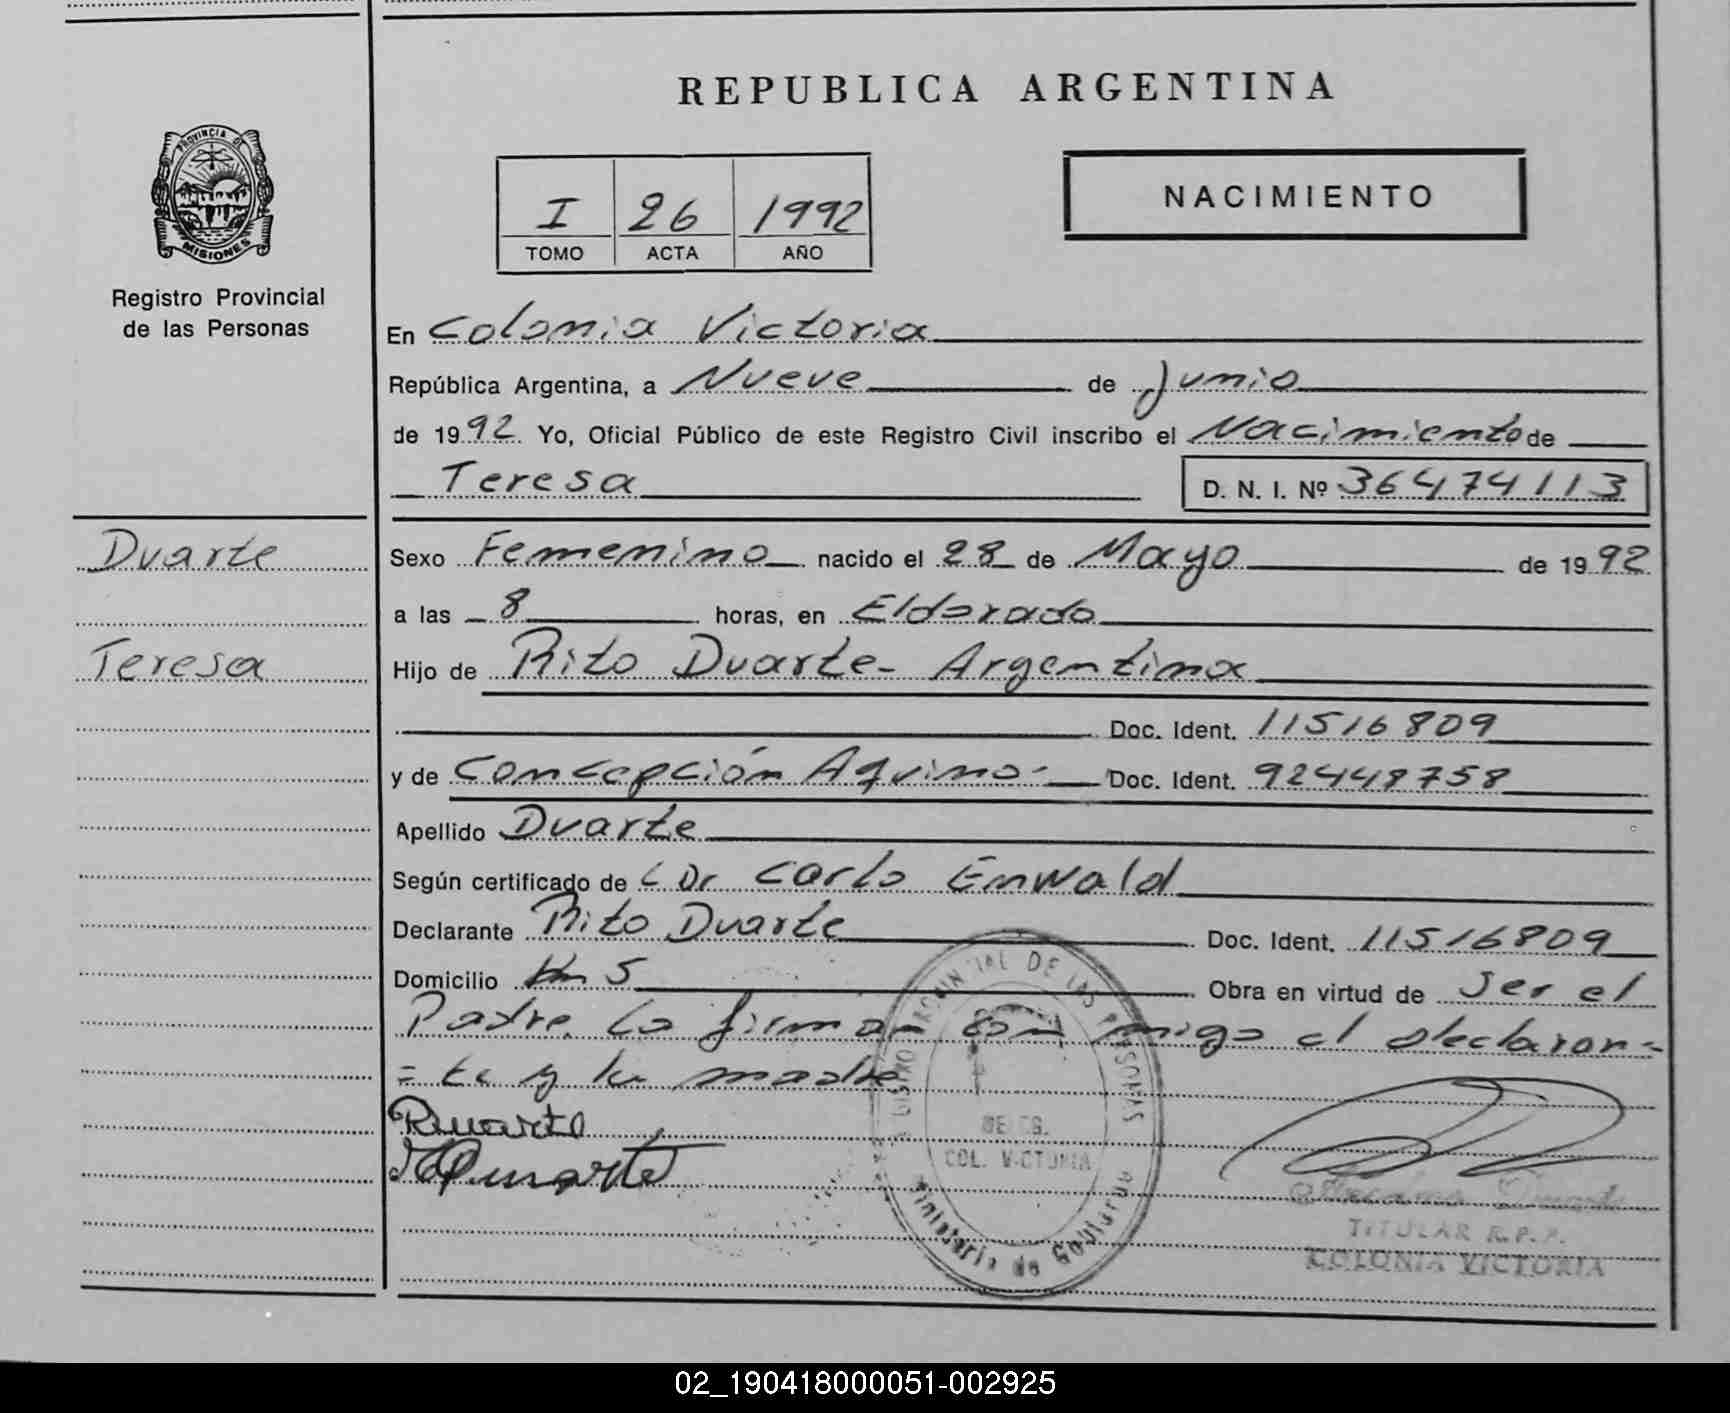 REPUBLICA ARGENTINA
PROVINCIA DE
MISIONES
Registro Provincial
de las Personas
I 26 1992
TOMO ACTA AÑO
NACIMIENTO
En Colonia Victoria
República Argentina, a Nueve de Junio
de 1992. Yo, Oficial Público de este Registro Civil inscribo el Nacimiento de
Teresa D. N. I. Nº 36474113
Duarte
Teresa
Sexo Femenino nacido el 28 de Mayo de 1992
a las 8 horas, en Eldorado
Hijo de Rito Duarte- Argentina
Doc. Ident. 11516809
y de Concepción Aquino- Doc. Ident. 92448758
Apellido Duarte
Según certificado de Dr Carlo Enwald
Declarante Rito Duarte Doc. Ident. 11516809
Domicilio Km 5 Obra en virtud de Ser el
Padre. La firman con migo el declaran=
=te y la madre
RDuarte
Duarte
DE LAS PERSONAS
DELEG.
COL. VICTORIA
Ministerio de Gobierno
Duarte
TITULAR R.P.P.
COLONIA VICTORIA
02_190418000051-002925